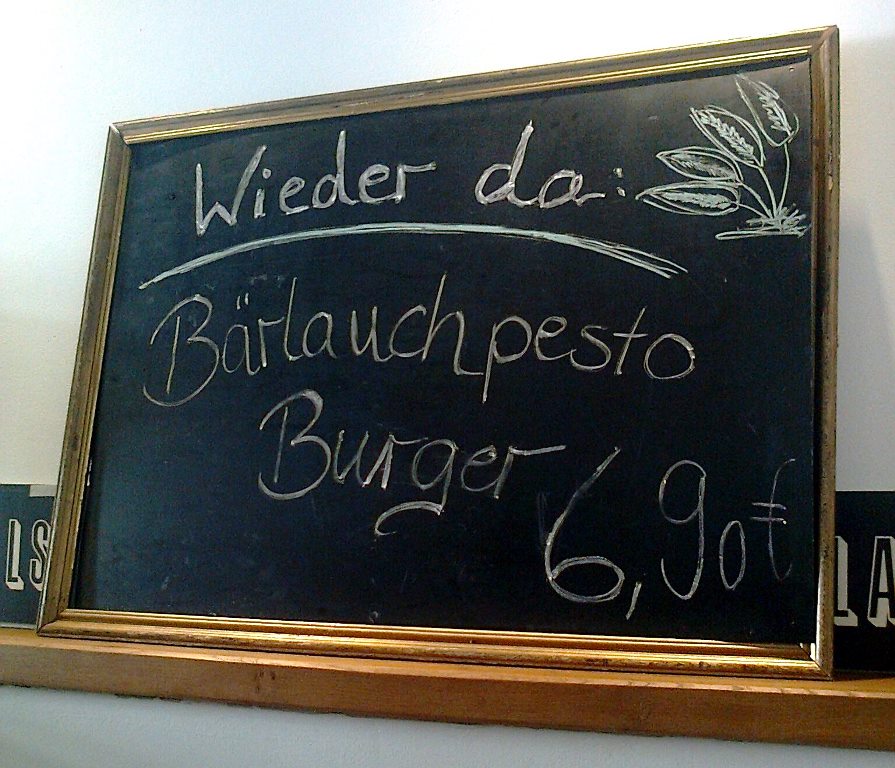 Wieder da:
Bärlauchpesto
Burger
6,90€
LS
LA